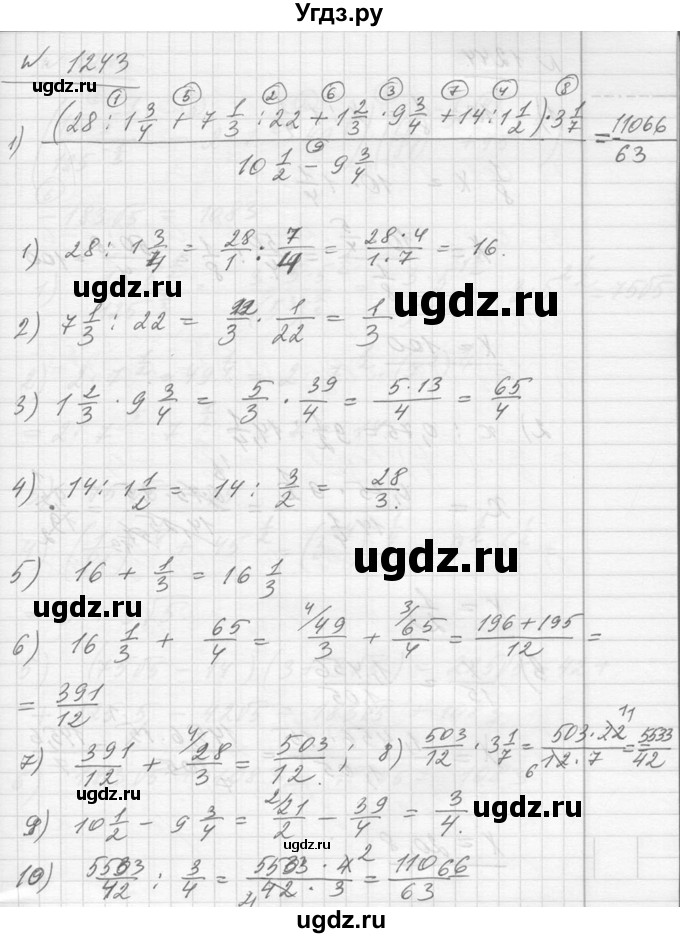 Угдз.ру
№ 1243
ugdz.ru
① ⑤ ② ⑥ ③ ⑦ ④ ⑧
1) (28 : 1 3/4 + 7 1/3 : 22 + 1 2/3 · 9 3/4 + 14 : 1 1/2) · 3 1/7 / 10 1/2 - 9 3/4 = 11066/63
⑨
1) 28 : 1 3/4 = 28/1 : 7/4 = 28·4/1·7 = 16.
ugdz.ru
ugdz.ru
2) 7 1/3 : 22 = 22/3 · 1/22 = 1/3
3) 1 2/3 · 9 3/4 = 5/3 · 39/4 = 5·13/4 = 65/4
4) 14 : 1 1/2 = 14 : 3/2 = 28/3.
ugdz.ru
5) 16 + 1/3 = 16 1/3
ugdz.ru
6) 16 1/3 + 65/4 = 4/49/3 + 3/65/4 = 196+195/12 =
= 391/12
7) 391/12 + 4/28/3 = 503/12. ; 8) 503/12 · 3 1/7 = 503·22 11/6 12·7 = 5533/42
ugdz.ru
ugdz.ru
9) 10 1/2 - 9 3/4 = 2/21/2 - 39/4 = 3/4.
10) 5533/42 : 3/4 = 5533·4 2/21 42·3 = 11066/63
ugdz.ru
ugdz.ru